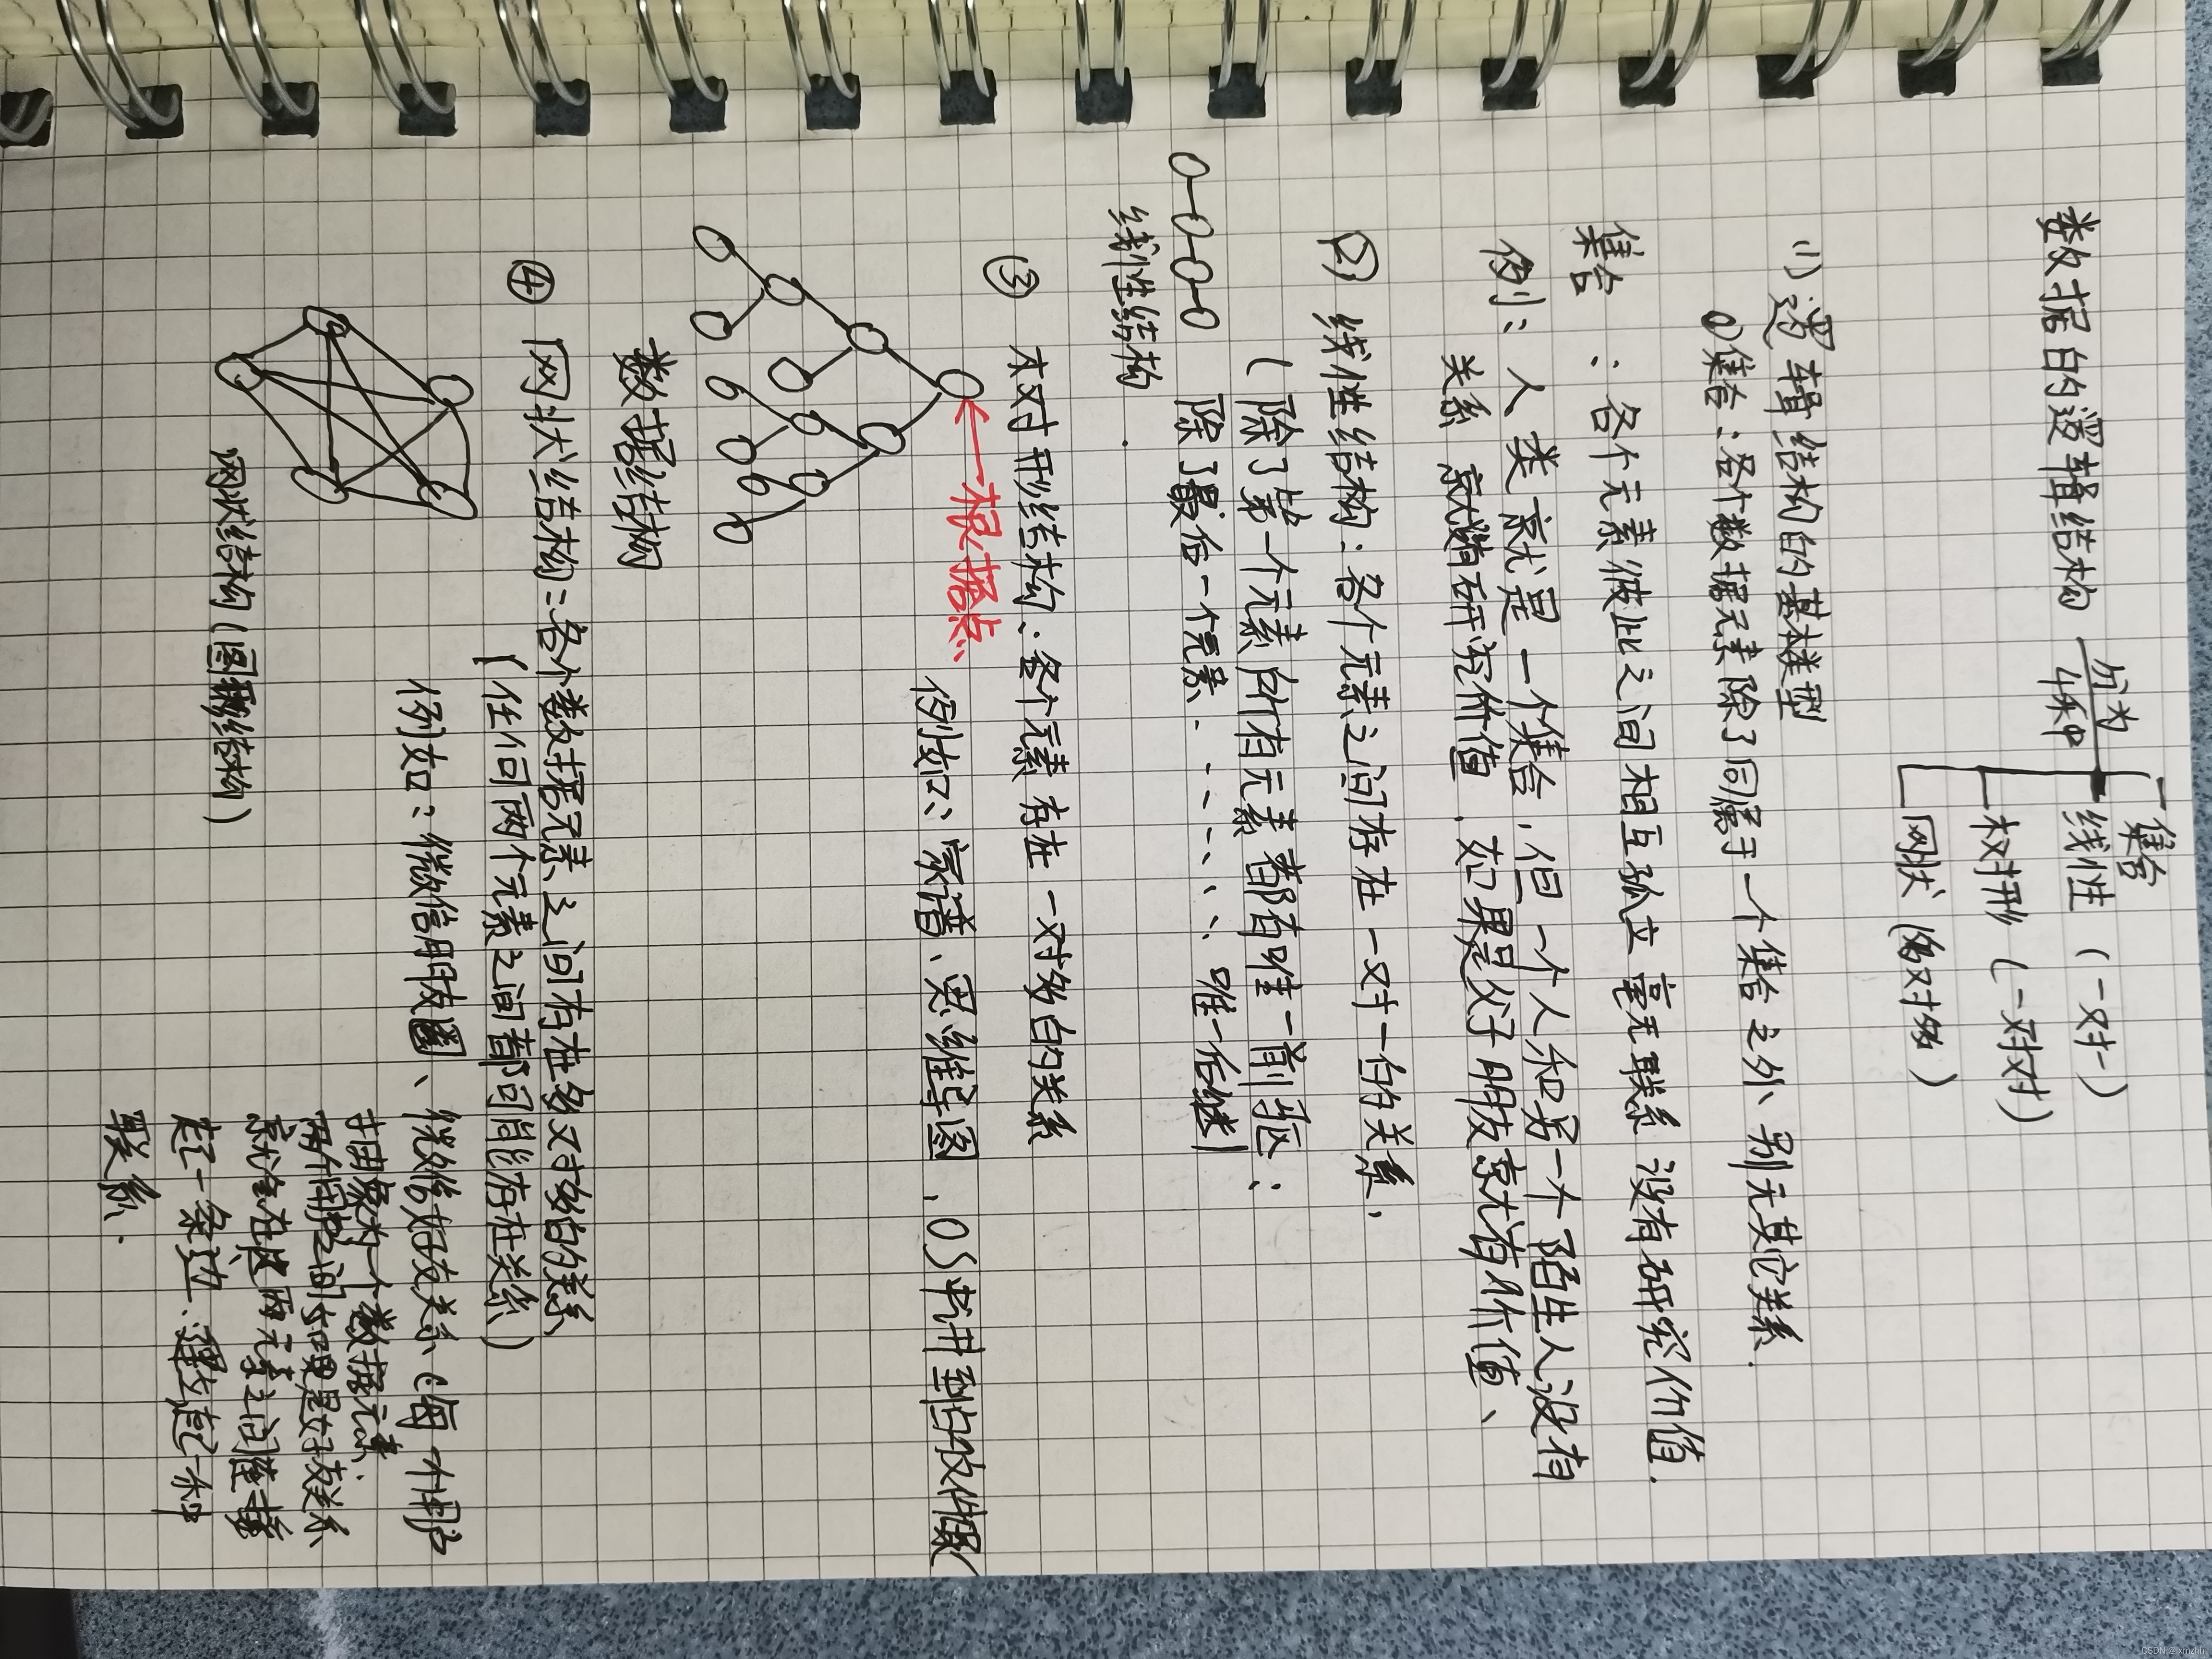 数据的逻辑结构 分为4种
集合
线性 (一对一)
树形 (一对对)
网状 (多对多)
(1) 逻辑结构的基本类型
①集合:各个数据元素除了同属于一个集合之外,别无其它关系.
集合:各个元素彼此之间相互孤立 毫无联系 没有研究价值.
例:人类就是一个集合,但一个人和另一个陌生人没有
关系 就没有研究价值.如果是父子朋友就有价值、
② 线性结构:各个元素之间存在一对一的关系,
(除了第一个元素所有元素都有唯一前驱;
除了最后一个元素......唯一后继)
线性结构
③ 树形结构:各个元素存在一对多的关系
根结点
例如:家谱、思维导图、OS讲到的文件
数据结构
④ 网状结构:各个数据元素之间存在多对多的关系
(任何两个元素之间都可能存在关系)
例如:微信朋友圈、微信好友关系(每一个用户
抽象为一个数据元素;
两个用户之间如果是好友关系
就会在这两元素之间连接
起一条边.建立起一种
联系.
网状结构(图形结构)
CSDN @lxmznh